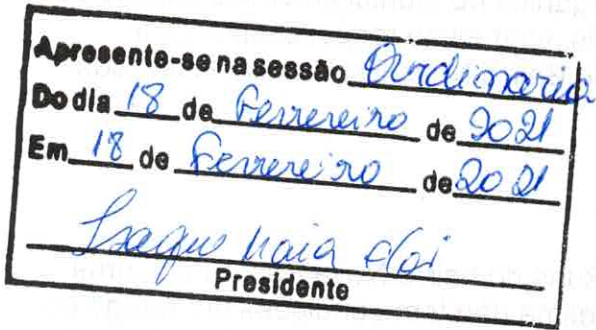 Apresente-se na sessão Ordimaria
Do dia 18 de Fevereiro de 2021
Em 18 de Fevereiro de 2021
Isaque Maia Eloi
Presidente